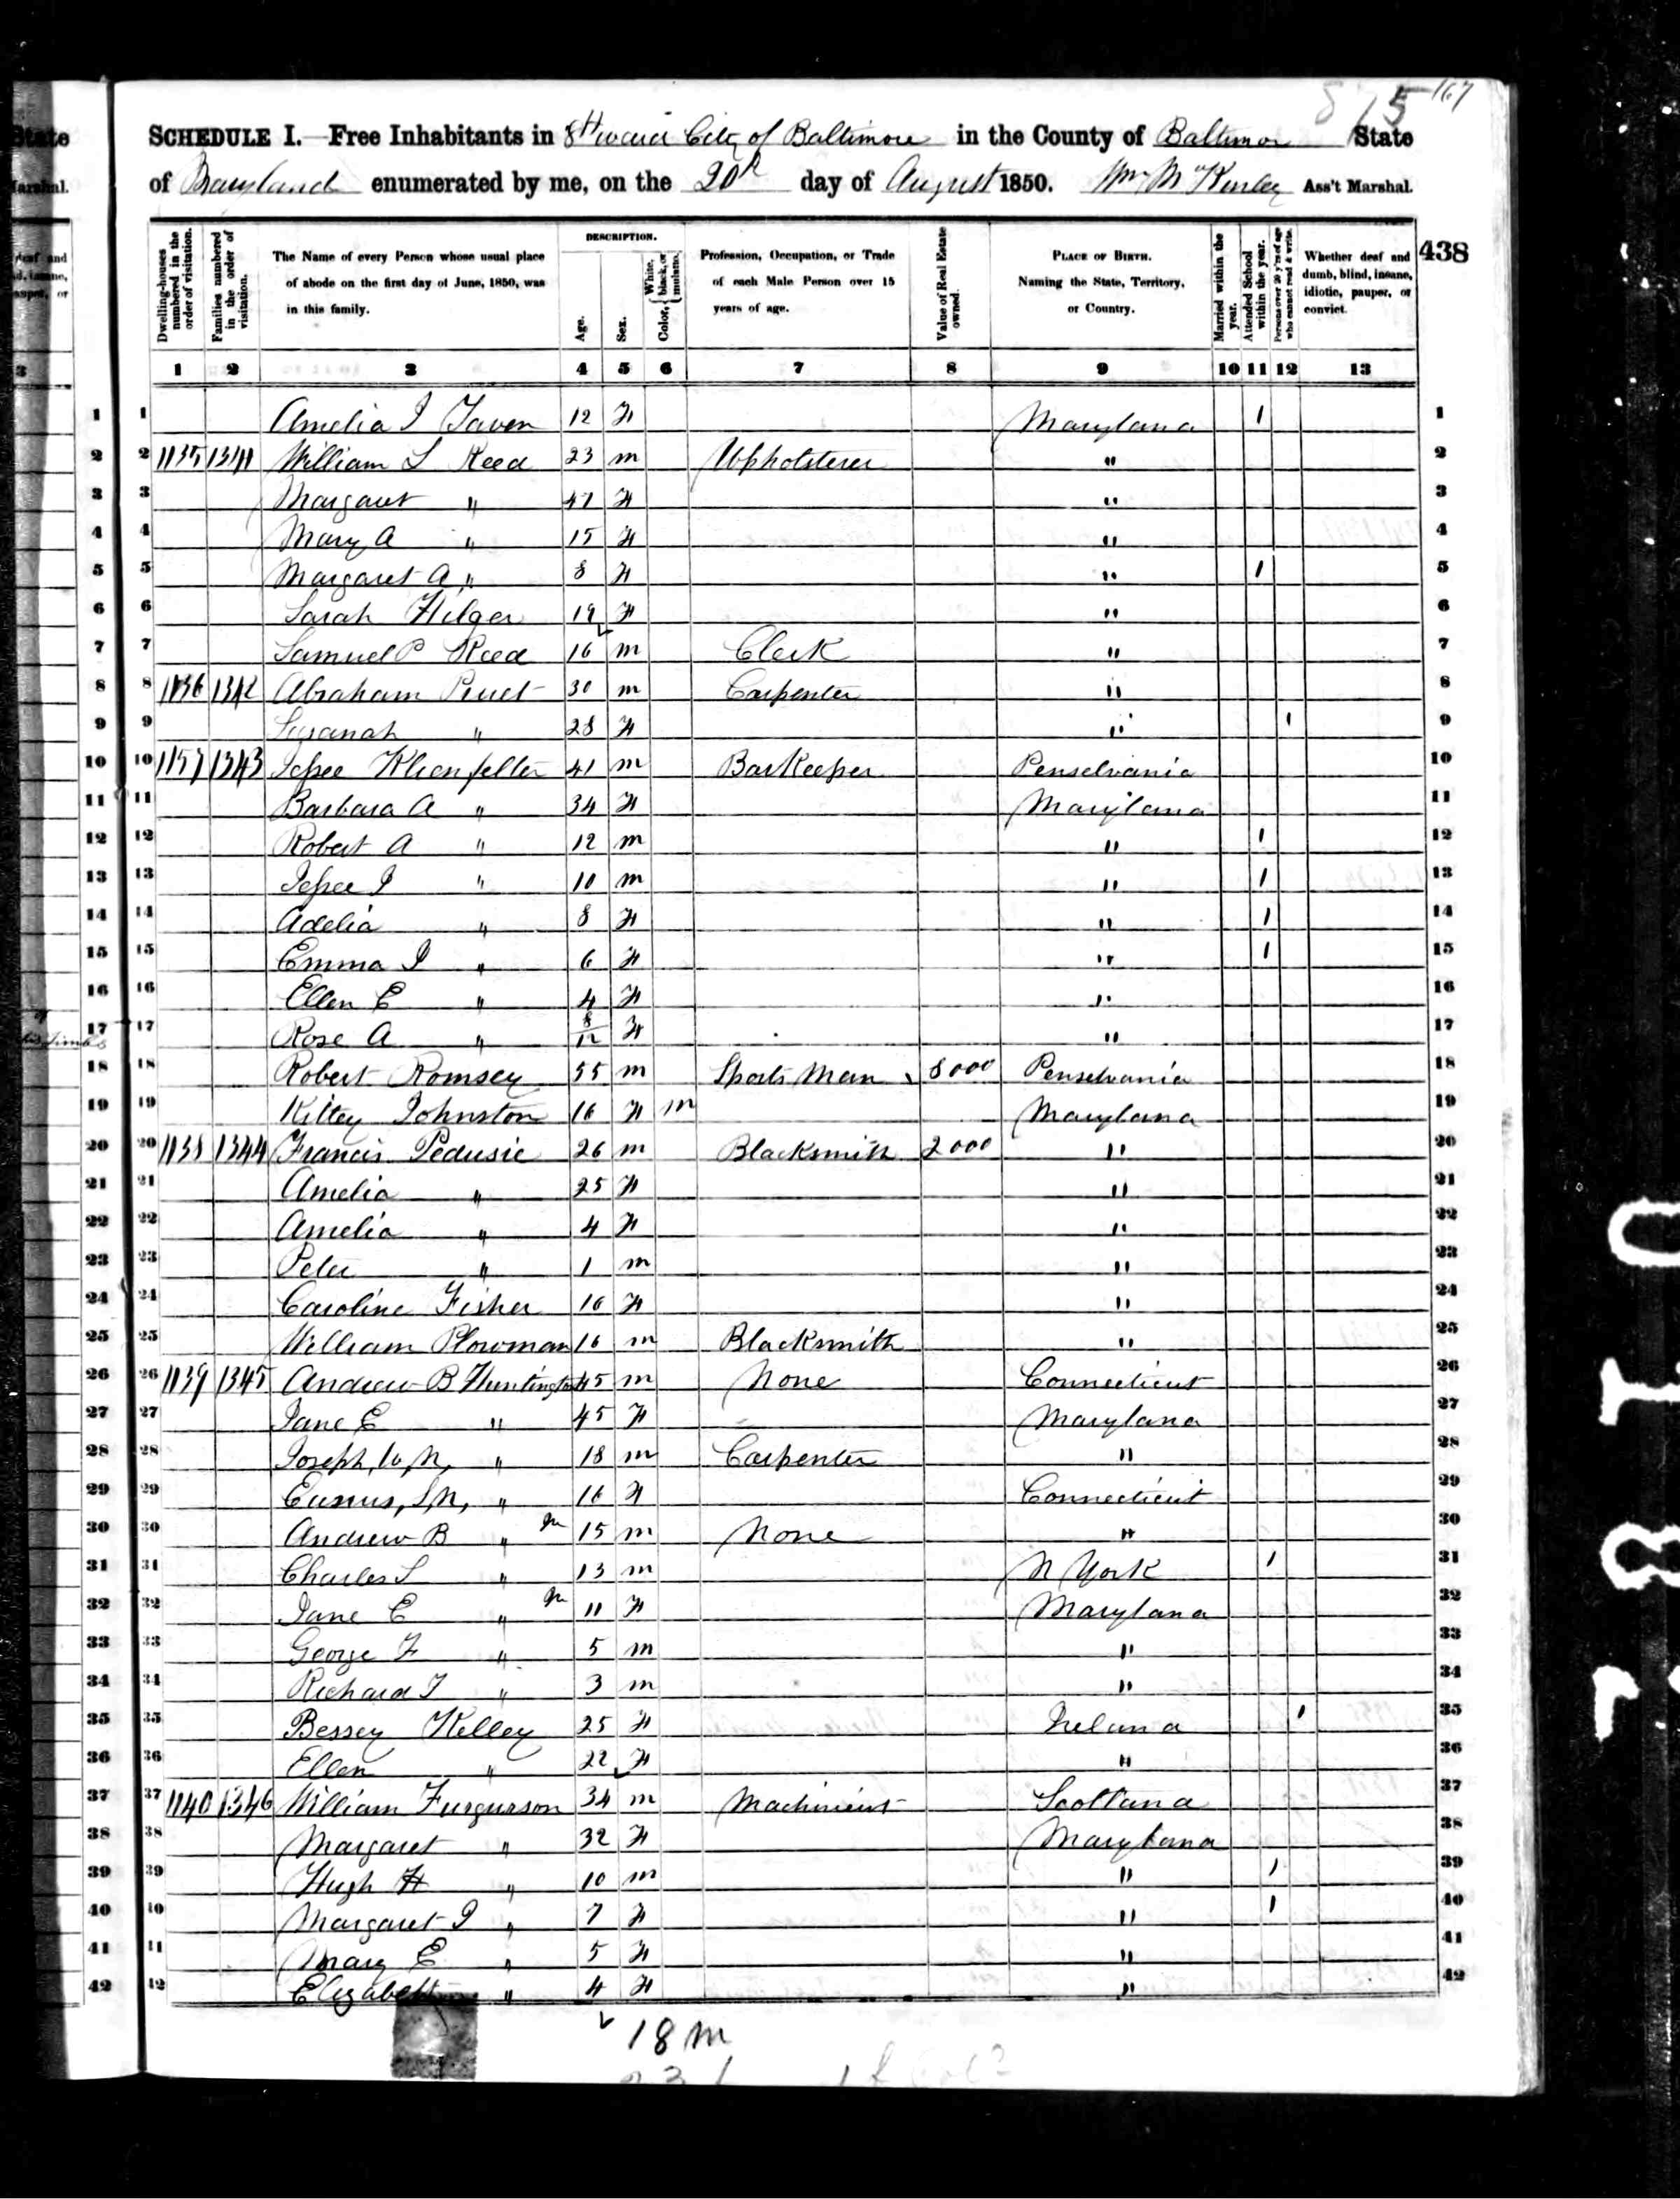 875 167
SCHEDULE I.—Free Inhabitants in 8th ward City of Baltimore in the County of Baltimore State
of Maryland enumerated by me, on the 20th day of August 1850. Wm McKinley Ass't Marshal.
438
Dwelling-houses numbered in the order of visitation.
Families numbered in the order of visitation.
The Name of every Person whose usual place of abode on the first day of June, 1850, was in this family.
DESCRIPTION.
Age.
Sex.
Color, White, black, or mulatto.
Profession, Occupation, or Trade of each Male Person over 15 years of age.
Value of Real Estate owned.
PLACE OF BIRTH. Naming the State, Territory, or Country.
Married within the year.
Attended School within the year.
Persons over 20 y'rs of age who cannot read & write.
Whether deaf and dumb, blind, insane, idiotic, pauper, or convict.
1 2 3 4 5 6 7 8 9 10 11 12 13
1 Amelia J 12 F Maryland 1 1
2 1135 1341 William L Reed 23 m Upholsterer " 2
3 Margaret " 47 F " 3
4 Mary A " 15 F " 4
5 Margaret A " 8 F " 1 5
6 Sarah Hilger 19 F " 6
7 Samuel P Reed 16 m Clerk " 7
8 1136 1342 Abraham 30 m Carpenter " 8
9 Susanah " 28 F " 1 9
10 1137 1343 Jessee Klienfelter 41 m BarKeeper Penselvania 10
11 Barbara A " 34 F Maryland 11
12 Robert A " 12 m " 1 12
13 Jessee J " 10 m " 1 13
14 Adelia " 8 F " 1 14
15 Emma J " 6 F " 1 15
16 Ellen E " 4 F " 16
17 Rose A " 8/12 F " 17
18 Robert Romsey 55 m Sports Man 8000 Penselvania 18
19 Kittey Johnston 16 F m Maryland 19
20 1138 1344 Francis Pedusie 26 m Blacksmith 2000 " 20
21 Amelia " 25 F " 21
22 Amelia " 4 F " 22
23 Peter " 1 m " 23
24 Caroline Fisher 16 F " 24
25 William Plowman 16 m Blacksmith " 25
26 1139 1345 Andrew B Huntington 45 m None Connecticut 26
27 Jane E " 45 F Maryland 27
28 Joseph, W, N, " 18 m Carpenter " 28
29 S, N, " 16 F Connecticut 29
30 Andrew B " Jn 15 m None " 30
31 Charles S " 13 m N York 1 31
32 Jane E " Jn 11 F Maryland 32
33 George F " 5 m " 33
34 Richard T " 3 m " 34
35 Bessey Kelley 25 F Ireland 1 35
36 Ellen " 22 F " 36
37 1140 1346 William Furgurson 34 m Machinist Scotland 37
38 Margaret " 32 F Maryland 38
39 Hugh H " 10 m " 1 39
40 Margaret J " 7 F " 1 40
41 Mary E " 5 F " 41
42 Elizabeth " 4 F " 42
18 m